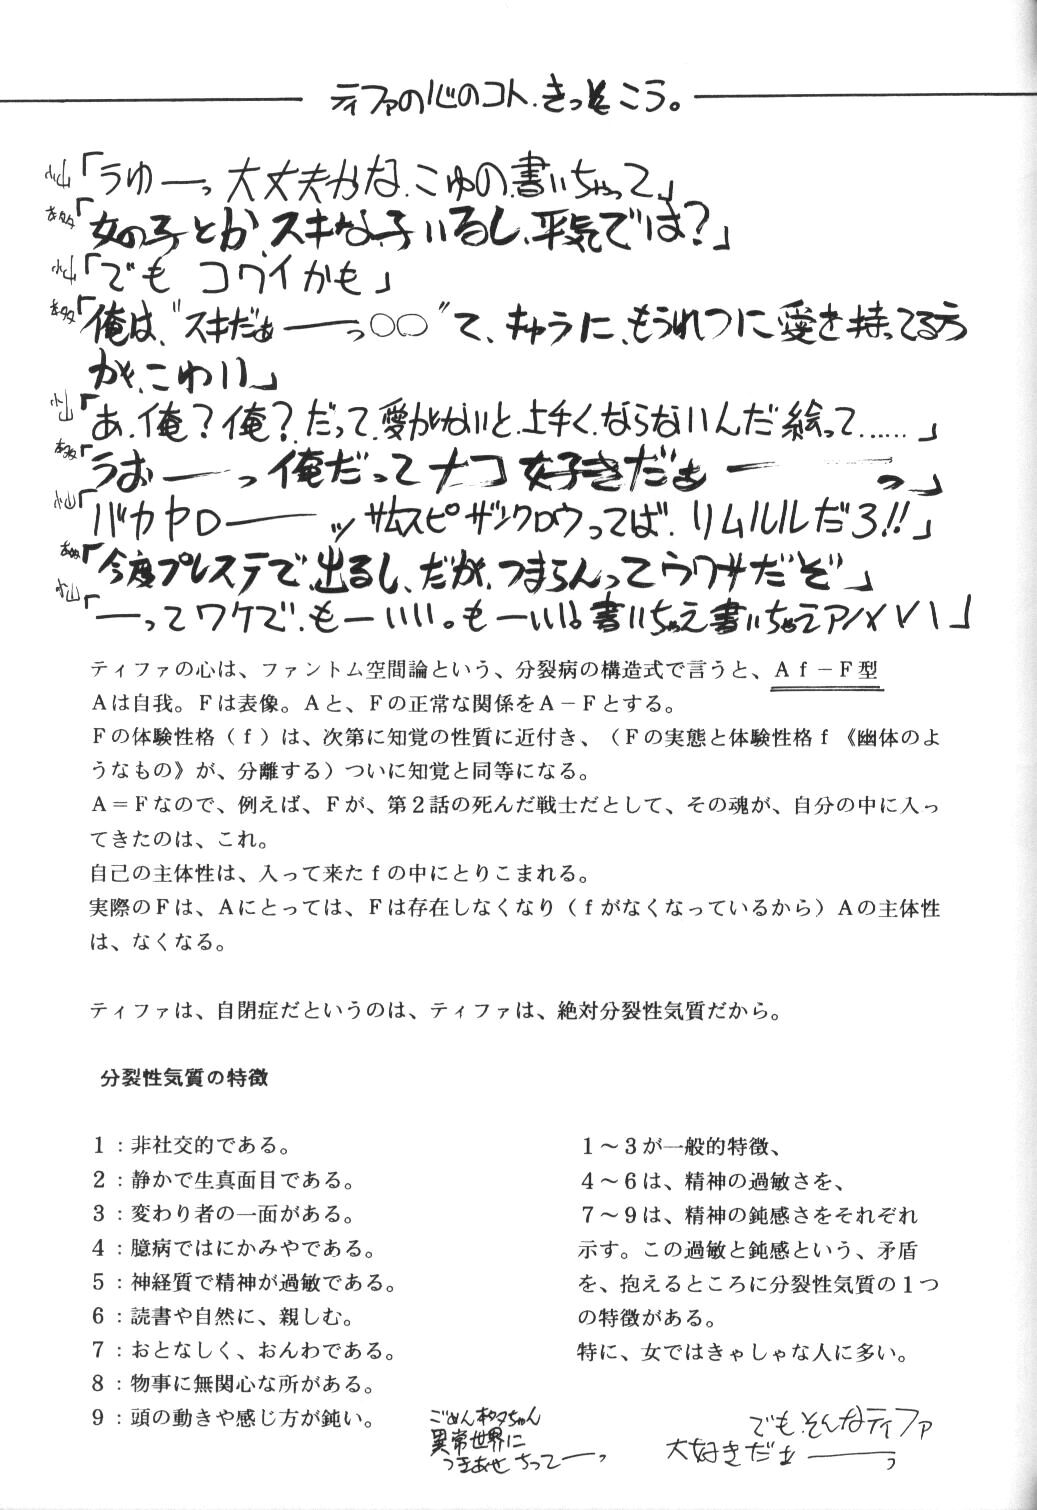 ティファの心のコト.きっそこう。
小山「うゆーっ 大丈夫かな.こゆの書いちゃって」
「女の子とか、スキな子いるし、平気では?」
小山「でも コワイかも」
「俺は、"スキだぁーっ○○"て、キャラに、もうれつに愛を持ってる方
が、こわい」
小山「あ.俺?俺?.だって.愛がないと.上手く.ならないんだ絵って……」
「うおーっ俺だってナコ好きだぁーっ」
小山「バカヤローーッ サムスピザンクロウってば.リムルルだろ!!」
「今度プレステで、出るし、だが、つまらんってウワサだぞ」
小山「ーってワケで.もーいい。もーいい。書いちゃえ書いちゃえアハハハ」
ティファの心は、ファントム空間論という、分裂病の構造式で言うと、Af－F型
Aは自我。Fは表像。Aと、Fの正常な関係をA－Fとする。
Fの体験性格(f)は、次第に知覚の性質に近付き、(Fの実態と体験性格f《幽体のよ
うなもの》が、分離する)ついに知覚と同等になる。
A＝Fなので、例えば、Fが、第2話の死んだ戦士だとして、その魂が、自分の中に入っ
てきたのは、これ。
自己の主体性は、入って来たfの中にとりこまれる。
実際のFは、Aにとっては、Fは存在しなくなり(fがなくなっているから)Aの主体性
は、なくなる。
ティファは、自閉症だというのは、ティファは、絶対分裂性気質だから。
分裂性気質の特徴
1:非社交的である。
2:静かで生真面目である。
3:変わり者の一面がある。
4:臆病ではにかみやである。
5:神経質で精神が過敏である。
6:読書や自然に、親しむ。
7:おとなしく、おんわである。
8:物事に無関心な所がある。
9:頭の動きや感じ方が鈍い。
1～3が一般的特徴、
4～6は、精神の過敏さを、
7～9は、精神の鈍感さをそれぞれ
示す。この過敏と鈍感という、矛盾
を、抱えるところに分裂性気質の1つ
の特徴がある。
特に、女ではきゃしゃな人に多い。
ごめん ちゃん
異常世界に
つきあせちってーっ
でも.そんなティファ
大好きだぁーっ